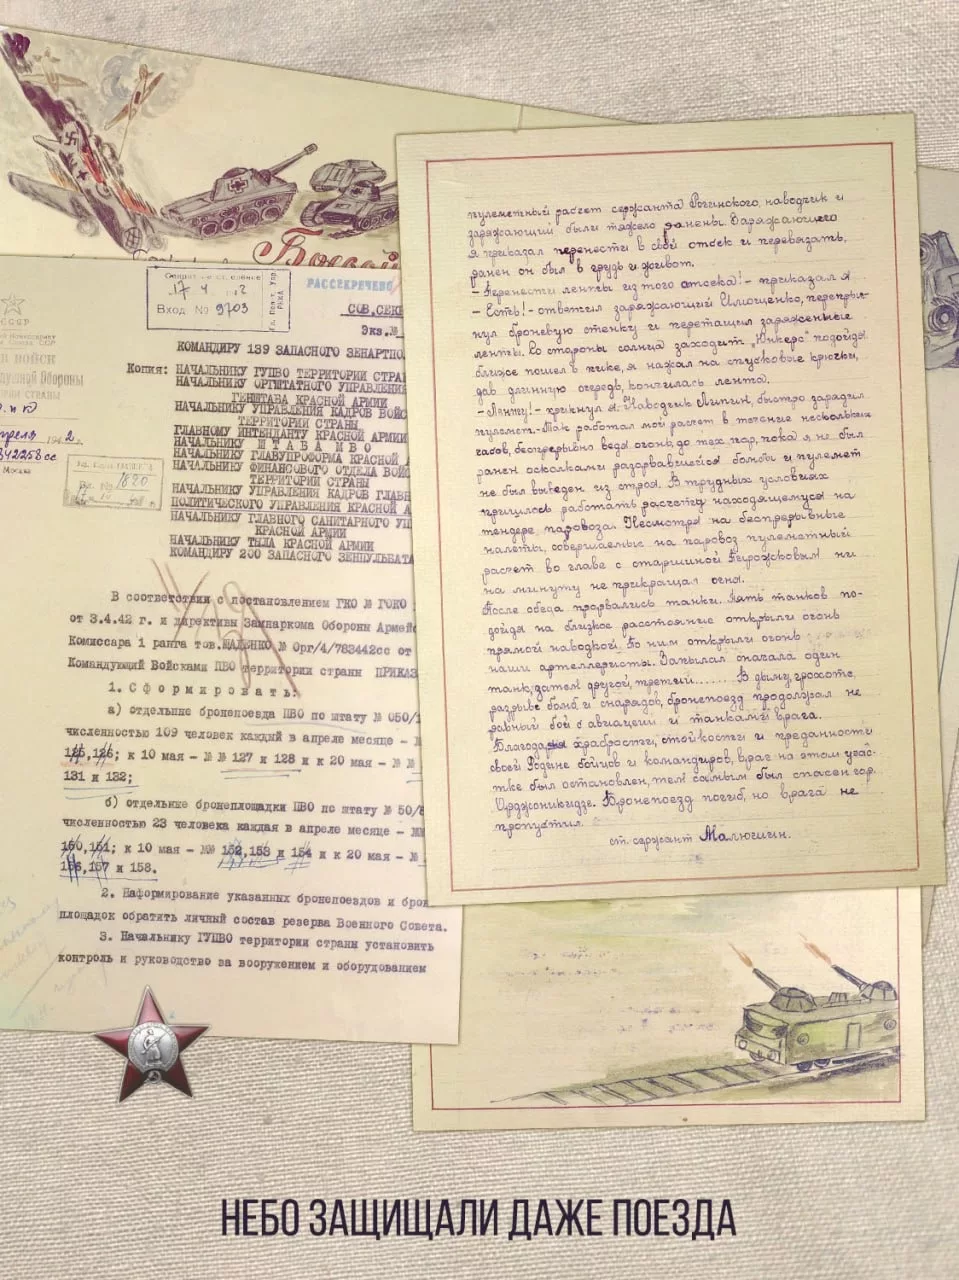 Боевой
СССР
Москва
Вход № 9703
РАССЕКРЕЧЕНО
СОВ.СЕК
Экз.№
КОМАНДИРУ 139 ЗАПАСНОГО ЗЕНАРТПО
Копия: НАЧАЛЬНИКУ ГУПВО ТЕРРИТОРИИ СТРА
НАЧАЛЬНИКУ ОРГШТАТНОГО УПРАВЛЕНИЯ
ГЕНШТАБА КРАСНОЙ АРМИИ
НАЧАЛЬНИКУ УПРАВЛЕНИЯ КАДРОВ ВОЙС
ТЕРРИТОРИИ СТРАНЫ
ГЛАВНОМУ ИНТЕНДАНТУ КРАСНОЙ АРМИИ
НАЧАЛЬНИКУ ШТАБА МВО
НАЧАЛЬНИКУ ГЛАВУПРОФОРМА КРАСНОЙ А
НАЧАЛЬНИКУ ФИНАНСОВОГО ОТДЕЛА ВОЙ
ТЕРРИТОРИИ СТРАНЫ
НАЧАЛЬНИКУ УПРАВЛЕНИЯ КАДРОВ ГЛАВН
ПОЛИТИЧЕСКОГО УПРАВЛЕНИЯ КРАСНОЙ А
НАЧАЛЬНИКУ ГЛАВНОГО САНИТАРНОГО УП
КРАСНОЙ АРМИИ
НАЧАЛЬНИКУ ТЫЛА КРАСНОЙ АРМИИ
КОМАНДИРУ 200 ЗАПАСНОГО ЗЕНПУЛЬБАТА
В соответствии с постановлением ГКО № ГОКО
от 3.4.42 г. и директивы Замнаркома Обороны Армей
Комиссара 1 ранга тов.ЩАДЕНКО № Орг/4/783442сс от
Командующий Войсками ПВО территории страны ПРИКАЗ
1. Сформировать:
а) отдельные бронепоезда ПВО по штату № 050/
численностью 109 человек каждый в апреле месяце - №
125,126; к 10 мая - №№ 127 и 128 и к 20 мая - №
131 и 132;
б) отдельные бронеплощадки ПВО по штату № 50/
численностью 23 человека каждая в апреле месяце - №
150,151; к 10 мая - №№ 152,153 и 154 и к 20 мая - №
156,157 и 158.
2. Наформирование указанных бронепоездов и брон
площадок обратить личный состав резерва Военного Совета.
3. Начальнику ГУПВО территории страны установить
контроль и руководство за вооружением и оборудованием
пулеметный расчет сержанта Рогинского, наводчик и
заряжающий были тяжело ранены. Заряжающего
я приказал перенести в свой отсек и перевязать,
ранен он был в грудь и живот.
– Перенести ленты из того отсека! – приказал я
– Есть! – ответил заряжающий Илющенко, перепры-
нул броневую стенку и перетащил заряженные
ленты. Со стороны солнца заходит „Юнкерс" подойдя
ближе пошел в пике, я нажал на спусковые крючки,
дав длинную очередь, кончилась лента.
– Ленту! – крикнул я. Наводчик Липин, быстро зарядил
пулемет. – Так работал мой расчет в течение нескольких
часов, беспрерывно ведя огонь, до тех пор, пока я не был
ранен осколками разорвавшейся бомбы и пулемет
не был выведен из строя. В трудных условиях
пришлось работать расчету находящемуся на
тендере паровоза. Несмотря на беспрерывные
налеты, совершаемые на паровоз пулеметный
расчет во главе с старшиной Бирожковым ни
на минуту не прекращал огня.
После обеда прорвались танки. Пять танков по-
дойдя на близкое расстояние открыли огонь
прямой наводкой. По ним открыли огонь
наши артиллеристы. Запылал сначала один
танк, затем другой, третий....... В дыму, грохоте,
разрыве бомб и снарядов, бронепоезд продолжал не
равный бой с авиацией и танками врага.
Благодаря храбрости, стойкости и преданности
своей Родине бойцов и командиров, враг на этом учас-
тке был остановлен, тем самым был спасен гор.
Орджоникидзе. Бронепоезд погиб, но врага не
пропустил.
ст. сержант Малюгин.
НЕБО ЗАЩИЩАЛИ ДАЖЕ ПОЕЗДА